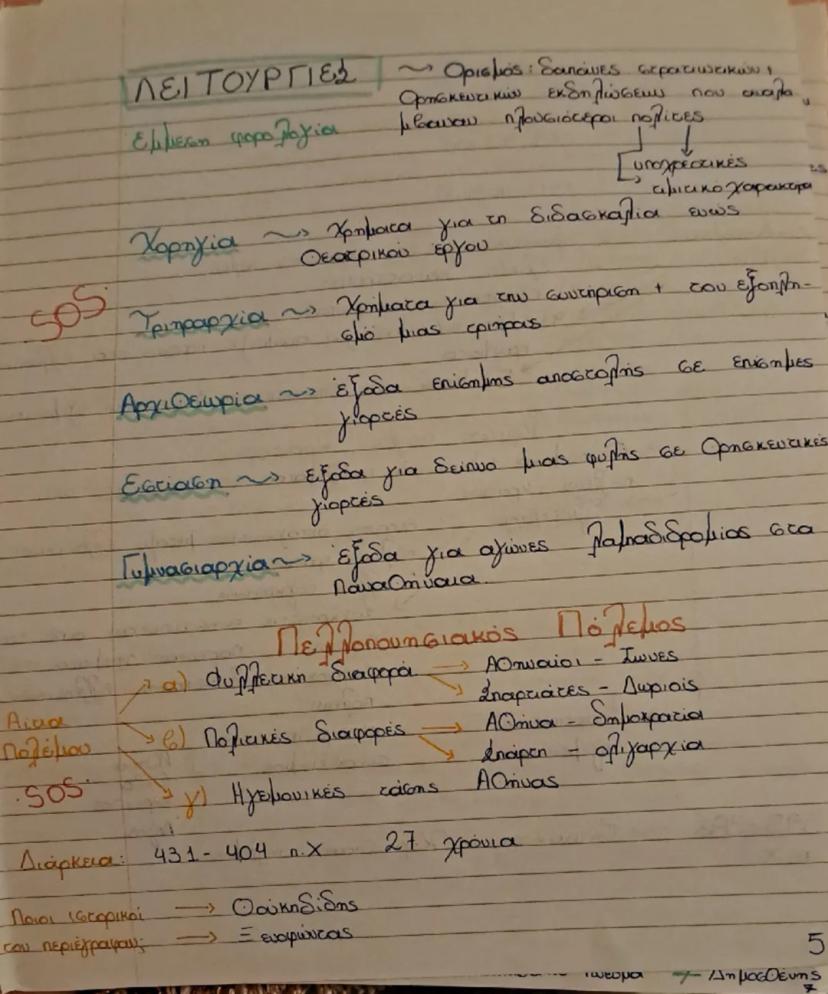 ΛΕΙΤΟΥΡΓΙΕΣ → Ορισμός: δαπάνες στρατιωτικών,
Εμμεση φορολογία θρησκευτικών εκδηλώσεων που αναλα
μβαναν πλουσιότεροι πολίτες
υποχρεωτικές
τιμητικο χαρακτηρα
Χορηγία → Χρηματα για τη διδασκαλία ενώς
Θεατρικού έργου
SOS. Τριηραρχία → Χρήματα για την συντήρηση + του εξοπλη-
σμό μιας τριήρης
ΑρχιΘεωρία → έξοδα επίσημης αποστολής σε επίσημες
γιορτές
Εστίαση → έξοδα για δείπνο μιας φυλής σε Θρησκευτικές
γιορτές
Γυμνασιαρχία → έξοδα για αγώνες λαμπαδιδρομίας στα
Παναθήναια.
Πελλοποννησιακός Πόλεμος
α) Φυλλετικη διαφορά → Αθηναίοι - Ίωνες
→ Σπαρτιάτες - Δωριείς
Αιτια
Πολέμου β) Πολιτικές διαφορές → Αθήνα - δημοκρατια
→ Σπάρτη - ολιγαρχία
.SOS. γ) Ηγεμονικές τάσης Αθήνας
Διάρκεια: 431 - 404 π.Χ 27 χρόνια
Ποιοι ιστορικοί → Θουκηδίδης
τον περιέγραψαν; → Ξενοφώντας
5
→ Δημοσθένης
7